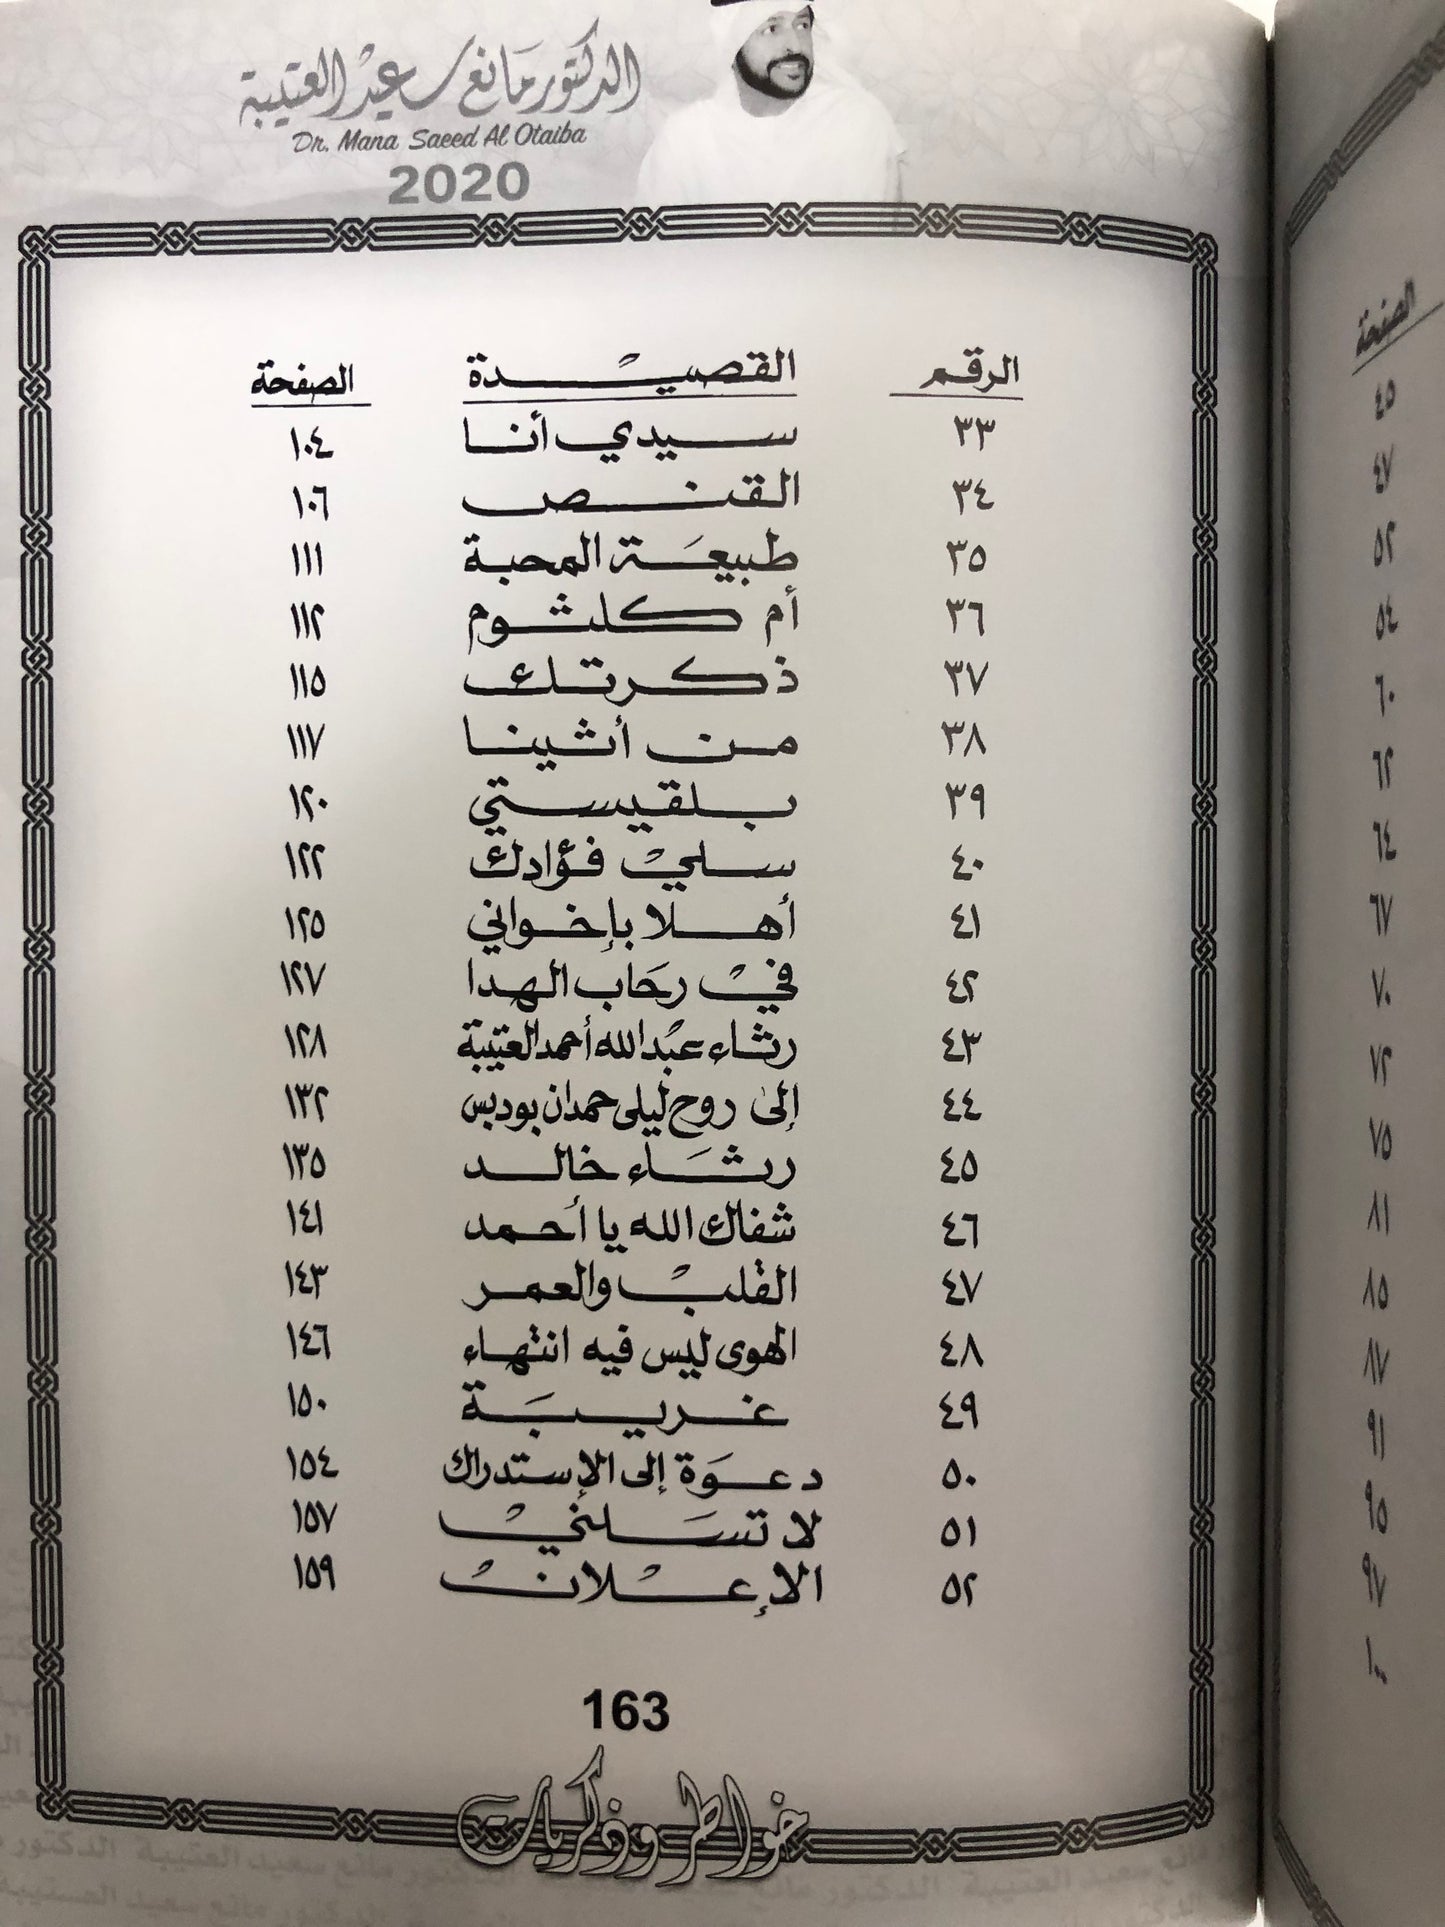 الدكتور مانع سعيد العتيبة
Dr. Mana Saeed Al Otaiba
2020
الرقم القصيدة الصفحة
٣٣ سيدي أنا ١٠٤
٣٤ القنص ١٠٦
٣٥ طبيعة المحبة ١١١
٣٦ أم كلثوم ١١٢
٣٧ ذكرتك ١١٥
٣٨ من أثينا ١١٧
٣٩ بلقيستي ١٢٠
٤٠ سلي فؤادك ١٢٢
٤١ أهلا بإخواني ١٢٥
٤٢ في رحاب الهدا ١٢٧
٤٣ رثاء عبدالله أحمد العتيبة ١٢٨
٤٤ إلى روح ليلى حمدان بودبس ١٣٢
٤٥ رثاء خالد ١٣٥
٤٦ شفاك الله يا أحمد ١٤١
٤٧ القلب والعمر ١٤٣
٤٨ الهوى ليس فيه انتهاء ١٤٦
٤٩ غريبة ١٥٠
٥٠ دعوة إلى الإستدراك ١٥٤
٥١ لا تسلني ١٥٧
٥٢ الإعلان ١٥٩
163
خواطر وذكريات
الصفحة
٤٥
٤٧
٥٢
٥٤
٦٠
٦٢
٦٤
٦٧
٧٠
٧٢
٧٥
٨١
٨٥
٨٧
٩١
٩٥
٩٧
١٠٠